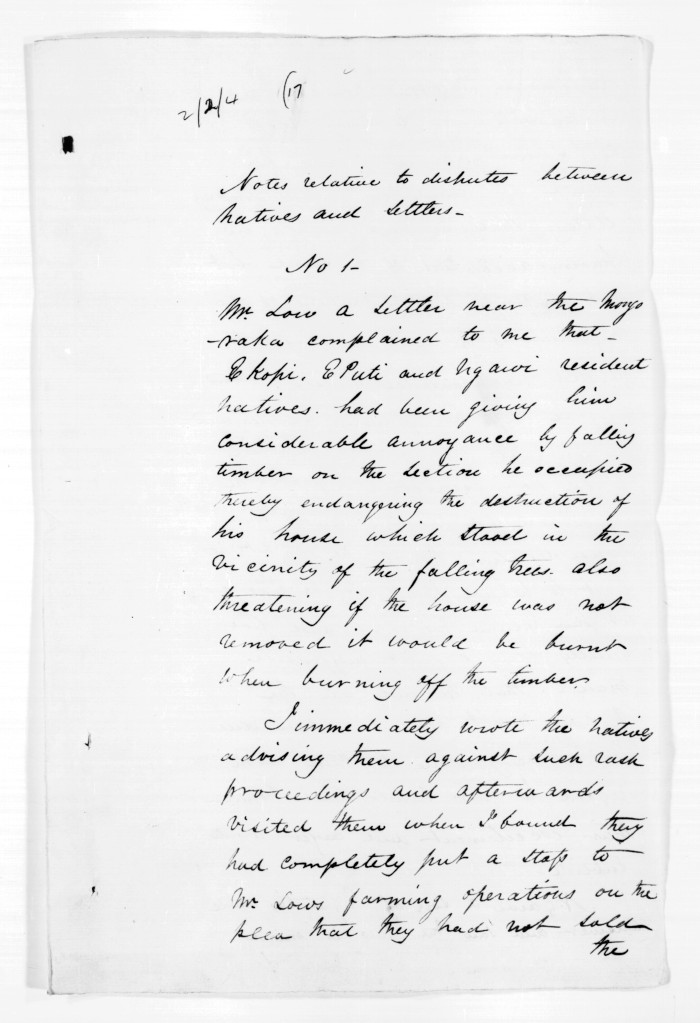 2/2/4 (17
Notes relative to disputes between
Natives and Settlers-
No 1-
Mr. Low a Settler near the
raka complained to me that-
E Kopi, E Puti and Ngawi resident
Natives. had been giving him
considerable annoyance by falling
timber on the section he occupied
thereby endangering the destruction of
his house which stood in the
vicinity of the falling trees. also
threatening if the house was not
removed it would be burnt
when burning off the timber.
I immediately wrote the natives
advising them against such rash
proceedings and afterwards
visited them when I found they
had completely put a stop to
Mr. Lows farming operations on the
plea that they had not sold
the